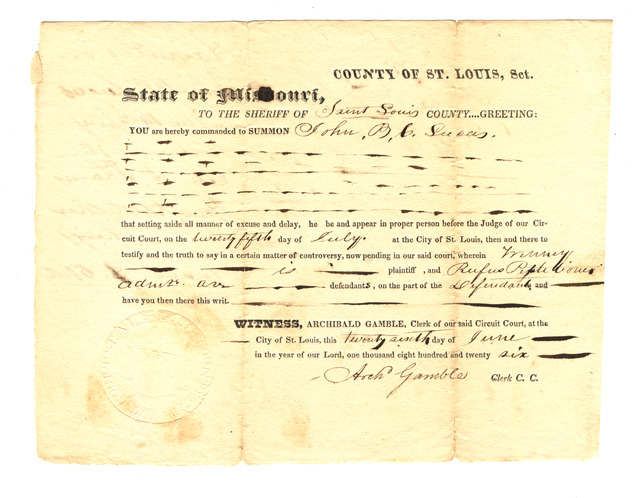 COUNTY OF ST. LOUIS, Sct.
State of Missouri,
TO THE SHERIFF OF Saint Louis COUNTY....GREETING:
YOU are hereby commanded to SUMMON John, B, C. Lucas.
that setting aside all manner of excuse and delay, he be and appear in proper person before the Judge of our Cir-
cuit Court, on the twenty fifth day of July. at the City of St. Louis, then and there to
testify and the truth to say in a certain matter of controversy, now pending in our said court, wherein Winney
is plaintiff, and Rufus
admrs. are defendants, on the part of the Defendants and
have you then there this writ.
WITNESS, ARCHIBALD GAMBLE, Clerk of our said Circuit Court, at the
City of St. Louis, this twenty sixth day of June
in the year of our Lord, one thousand eight hundred and twenty six
Archd Gamble Clerk C. C.